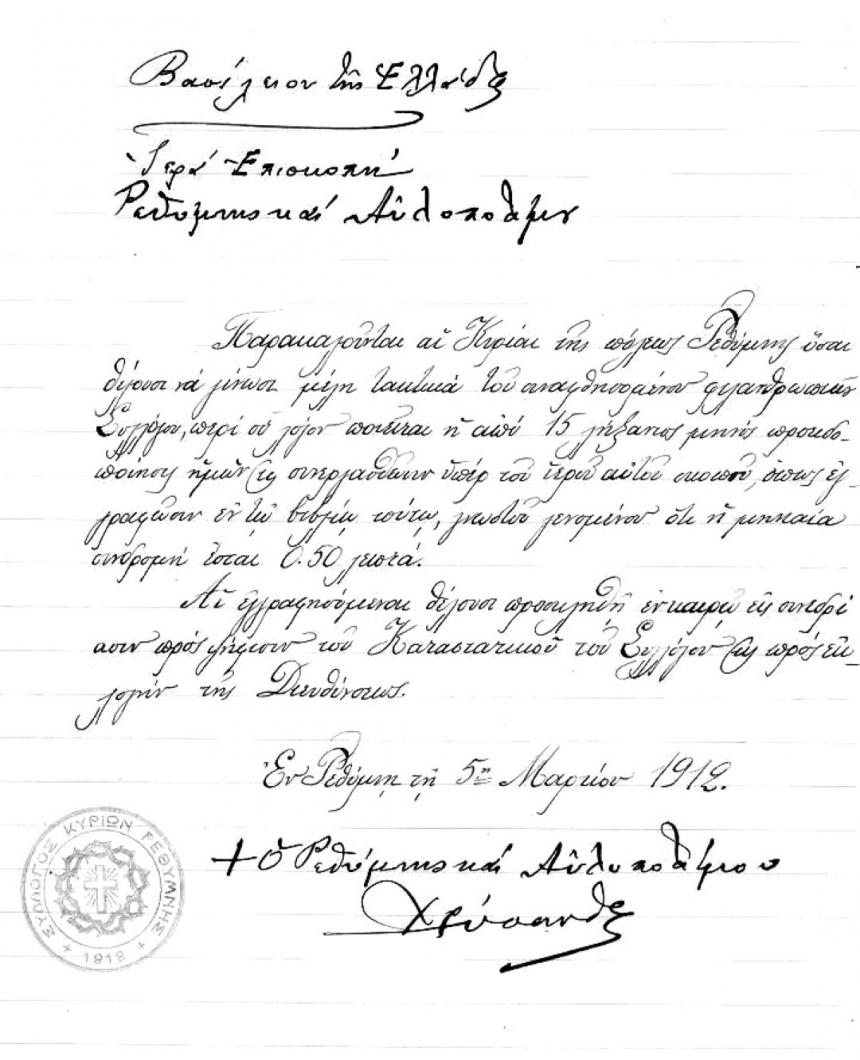 Βασίλειον τῆς Ἑλλάδος
Ἱερά Ἐπισκοπή
Ρεθύμνης καί Αὐλοποτάμου
Παρακαλοῦνται αἱ Κυρίαι τῆς πόλεως Ρεθύμνης ὅσαι
θέλουσι νά γίνωσι μέλη τακτικά τοῦ φιλανθρωπικοῦ
Συλλόγου, περί οὗ λόγον ποιεῖται ἡ ἀπό 15 λήξαντος μηνός προσωπο-
ποίησις ἡμῶν ὑπέρ τοῦ ἱεροῦ αὐτοῦ σκοποῦ, ὅπως ἐγ-
γραφῶσιν ἐν τῷ βιβλίῳ τούτῳ, γνωστοῦ γενομένου ὅτι ἡ μηνιαία
συνδρομή ἔσται 0.50 λεπτά.
Αἱ ἐγγραφησόμεναι θέλουσι προσκληθῆ ἐν καιρῷ εἰς συνεδρί
ασιν πρός ψήφισιν τοῦ Καταστατικοῦ τοῦ Συλλόγου καί πρός ἐκ-
λογήν τῆς Διευθύνσεως.
Ἐν Ρεθύμνῃ τῇ 5ῃ Μαρτίου 1912.
+ Ὁ Ρεθύμνης καί Αὐλοποτάμου
Χρύσανθος
ΣΥΛΛΟΓΟΣ ΚΥΡΙΩΝ ΡΕΘΥΜΝΗΣ
+ 1912 +